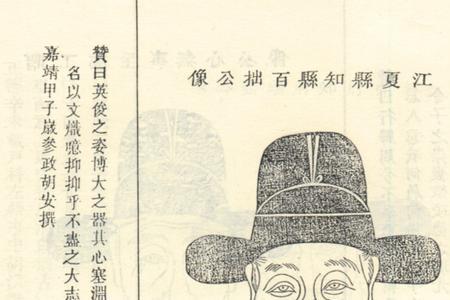 江夏縣知縣百拙公像
贊曰英俊之姿博大之器其心塞淵
名以文熾噫抑抑乎不盡之大志
嘉靖甲子歲參政胡安撰